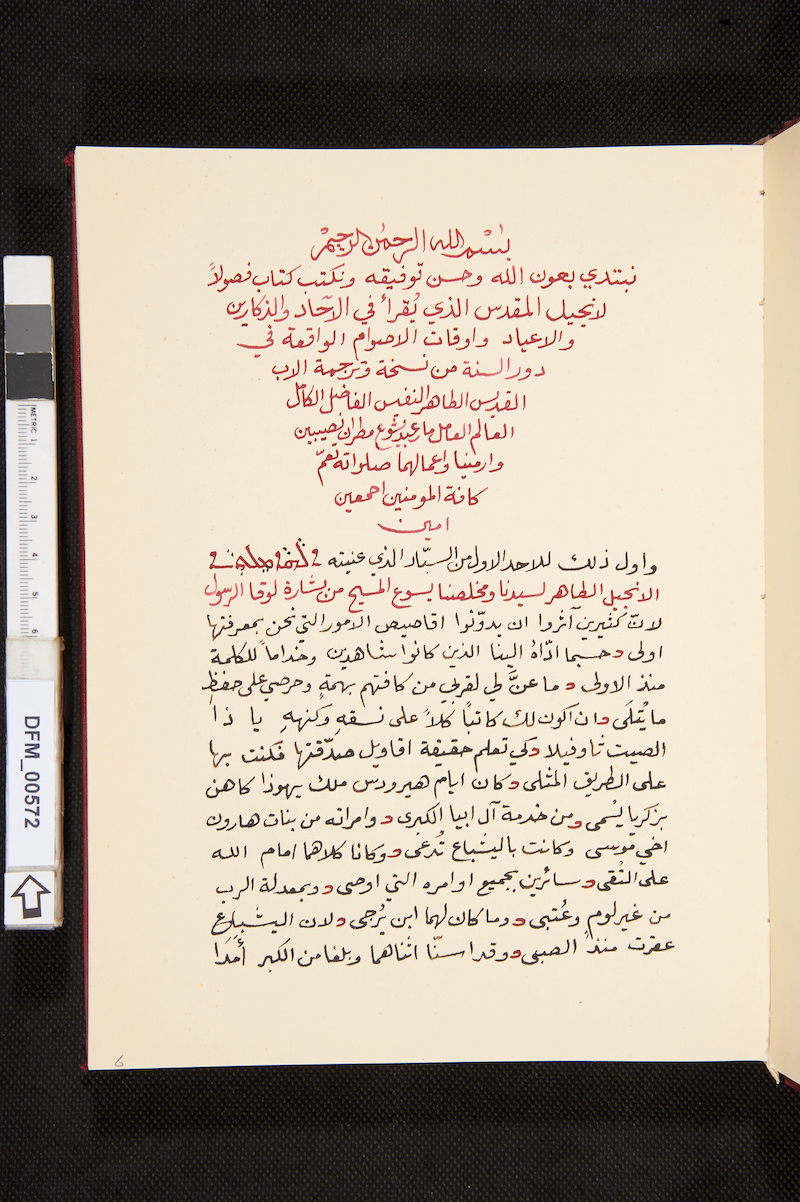 بسم الله الرحمن الرحيم
نبتدي بعون الله وحسن توفيقه ونكتب كتاب فصولاً
لانجيل المقدس الذي يُقرأ في الآحاد والذكارين
والاعياد واوقات الاصوام الواقعة في
دور السنة من نسخة وترجمة الاب
القديس الطاهر النفيس الفاضل الكامل
العالم العامل مار عبد يشوع مطران نصيبين
وارمنيا واعمالهما صلواته تعمّ
كافة المومنين اجمعين
امين
واول ذلك للاحد الاول من السبّار الذي عنيته
الانجيل الطاهر لسيدنا ومخلصنا يسوع المسيح من بشارة لوقا الرسول
لانّ كثيرين آثروا ان يدوّنوا اقاصيص الامور التي نحن بمعرفتها
اولى د حسبما ادّاهُ الينا الذين كانوا شاهدين وخداماً للكلمة
منذ الاولى د ما عنَّ لي لقربي من كافتهم بهمةٍ وحرصي على حفظِ
ما يُتلَى د ان اكون لك كاتباً كلاً على نسقهِ وكنههِ يا ذا
الصيت ثاوفيلا د كي تعلم حقيقة اقاويل صدّقتها فكنت بها
على الطريق المثلى د كان ايام هيرودس ملك يهوذا كاهن
بزكريا يُسمى د ومن خدمة آل ابيا الكبرى د وامراته من بنات هارون
اخي موسى وكانت باليشباع تُدعى د وكانا كلاهما امام الله
على التُقى د سائرين بجميع اوامره التي اوصى د وبمعدلة الرب
من غير لومٍ وعُتبى د وما كان لهما ابن يُرجى د لان اليشباع
عقرت منذ الصبى د وقد اسنّا اثناهما وبلغا من الكبر أَمَدَا
DFM_00572
METRIC 1
2
3
4
5
6
6